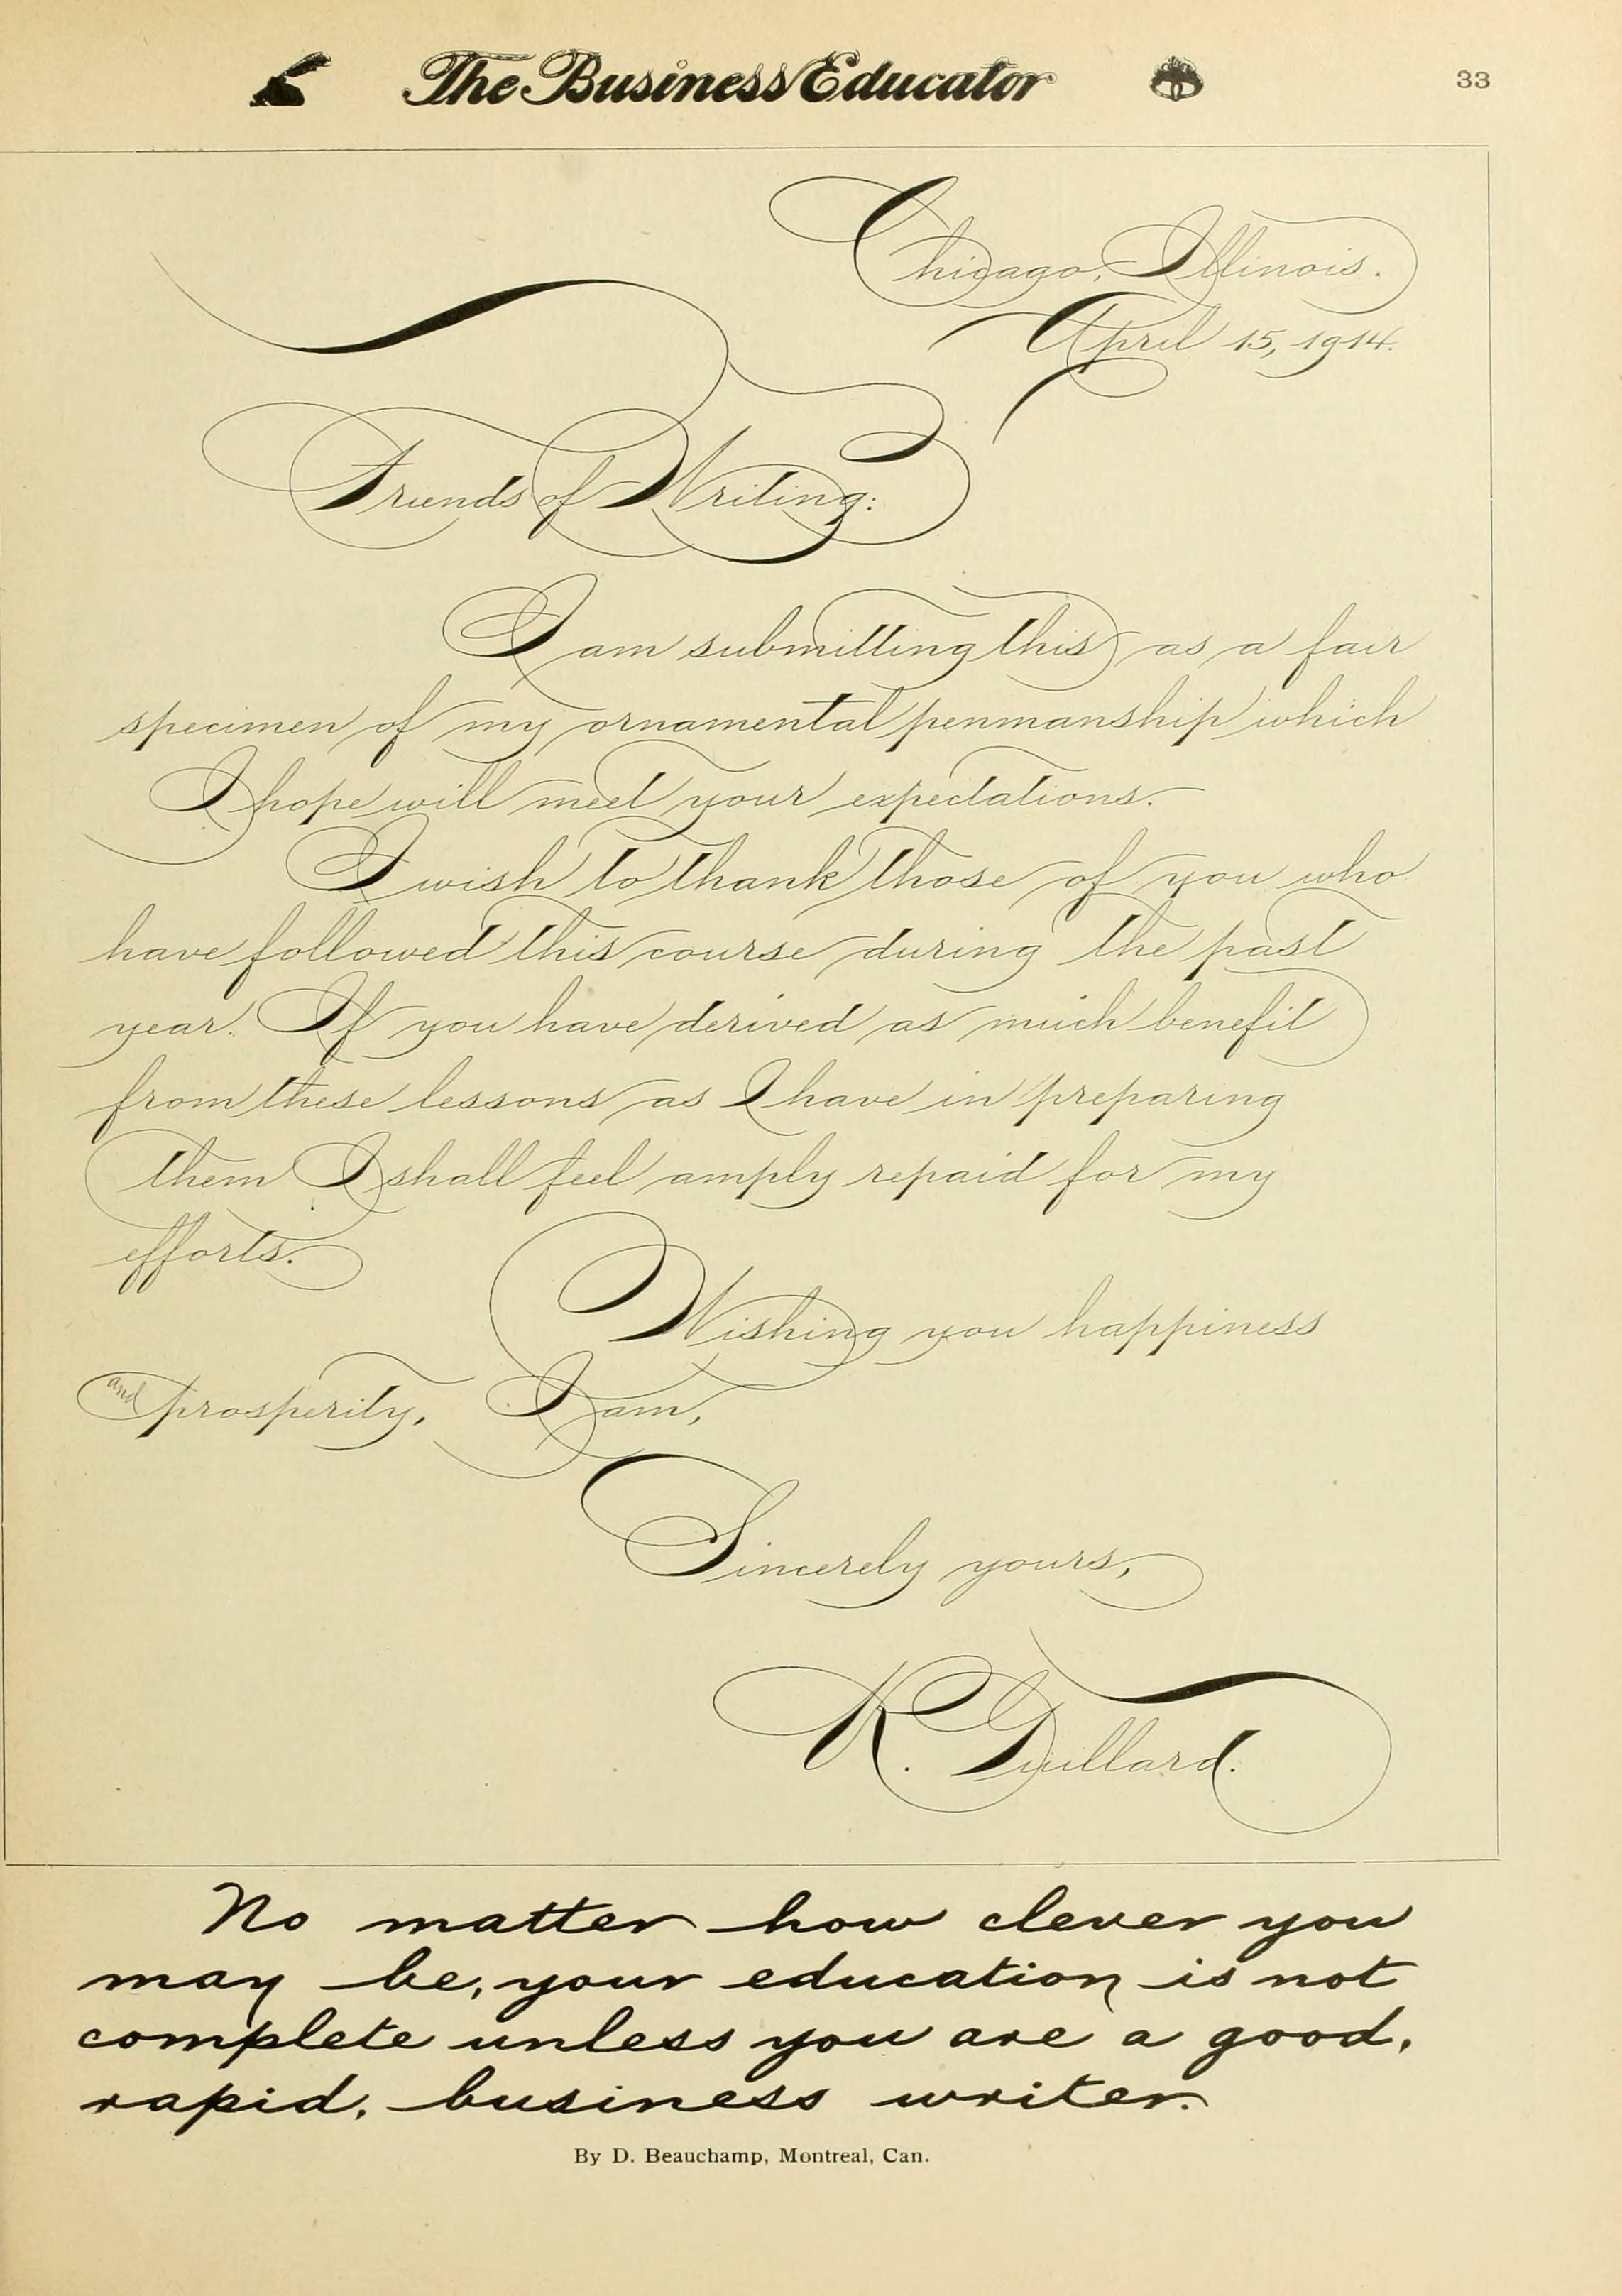 The Business Educator
33
Chicago, Illinois.
April 15, 1914.
Friends of Writing:
I am submitting this as a fair
specimen of my ornamental penmanship which
I hope will meet your expectations.
I wish to thank those of you who
have followed this course during the past
year. If you have derived as much benefit
from these lessons as I have in preparing
them I shall feel amply repaid for my
efforts.
Wishing you happiness
and prosperity, I am,
Sincerely yours,
R. Guillard.
No matter how clever you
may be, your education is not
complete unless you are a good,
rapid, business writer.
By D. Beauchamp, Montreal, Can.